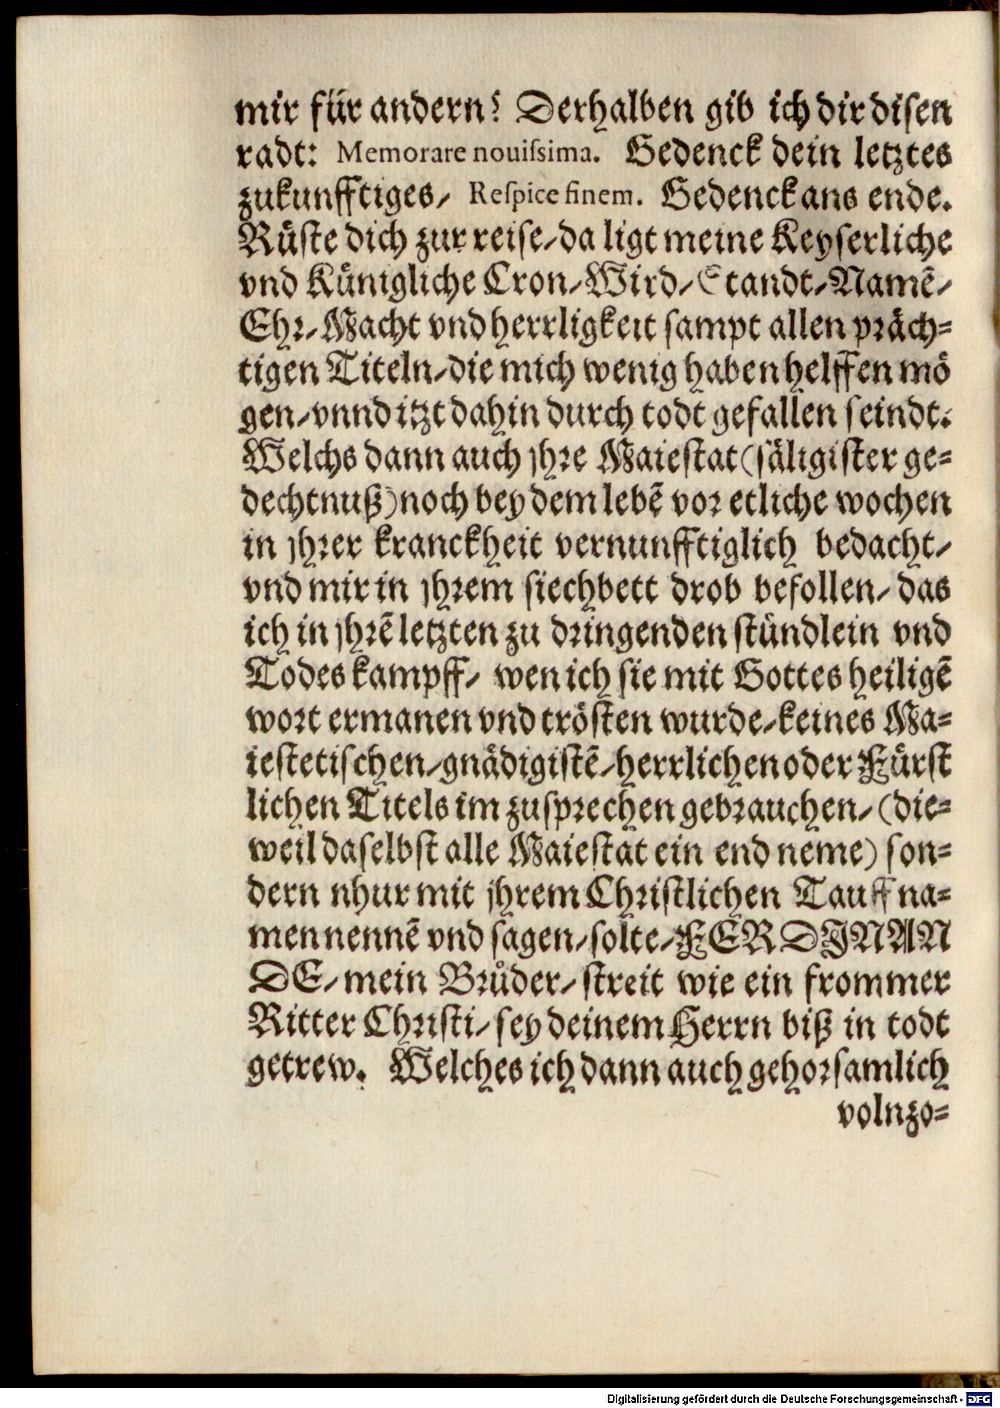 mir für andern? Derhalben gib ich dir disen
radt: Memorare nouissima. Gedenck dein letztes
zukunfftiges/ Respice finem. Gedenck ans ende.
Rüste dich zur reise/ da ligt meine Keyserliche
vnd Künigliche Cron/ Wird/ Standt/ Namē/
Ehr/ Macht vnd herrligkeit sampt allen präch⸗
tigen Titeln/ die mich wenig haben helffen mö
gen/ vnnd itzt dahin durch todt gefallen seindt.
Welchs dann auch jhre Maiestat (säligister ge⸗
dechtnuß) noch bey dem lebē vor etliche wochen
in jhrer kranckheit vernunfftiglich bedacht/
vnd mir in jhrem siechbett drob befollen/ das
ich in jhrē letzten zu dringenden stündlein vnd
Todes kampff/ wen ich sie mit Gottes heiligē
wort ermanen vnd trösten wurde/ keines Ma⸗
iestetischen/ gnädigistē/ herrlichen oder Fürst
lichen Titels im zusprechen gebrauchen/ (die⸗
weil daselbst alle Maiestat ein end neme) son⸗
dern nhur mit jhrem Christlichen Tauff na⸗
men nennē vnd sagen/ solte/ FERDINAN
DE/ mein Brůder/ streit wie ein frommer
Ritter Christi/ sey deinem Herrn biß in todt
getrew. Welches ich dann auch gehorsamlich
volnzo⸗
Digitalisierung gefördert durch die Deutsche Forschungsgemeinschaft - DFG